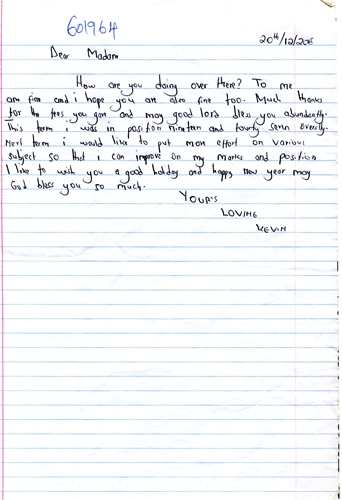 601964
20th/12/2015
Dear Madam
How are you doing over there? To me
am fine and i hope you are also fine too. Much thanks
for the fees you gave and may good lord bless you abundantly.
This term i was in position nineteen and fourty seven overally.
Next term i would like to put more effort on various
subject so that i can improve on my marks and position
I like to wish you a good holiday and happy new year may
God bless you so much.
YOUR'S
LOVING
KEVIN